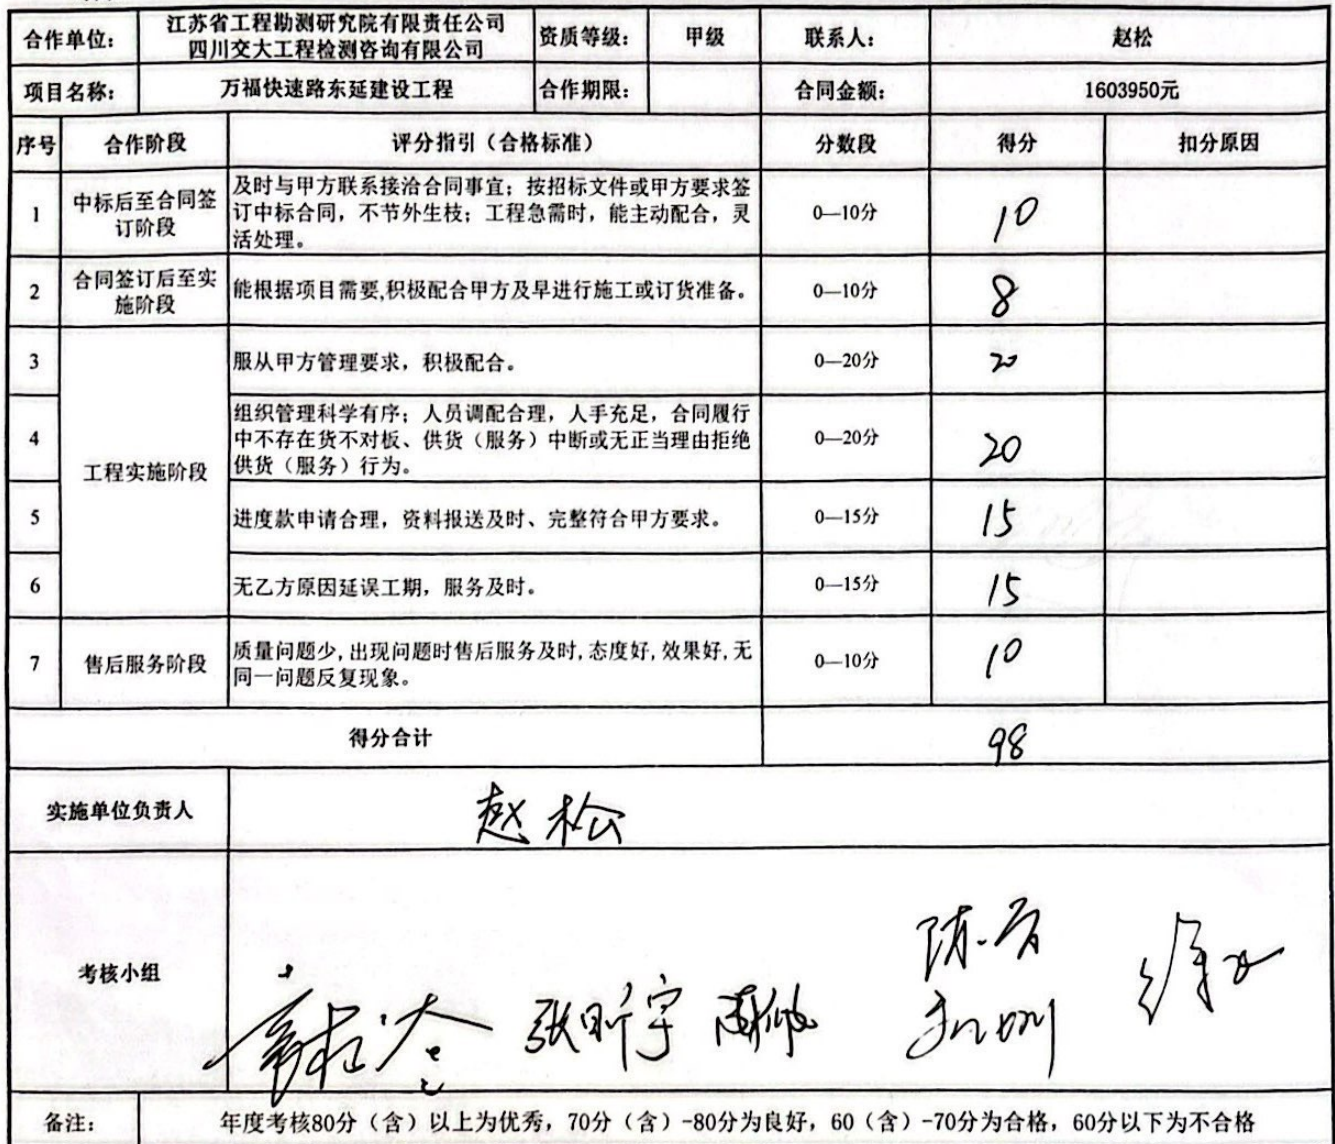 合作单位：
江苏省工程勘测研究院有限责任公司
四川交大工程检测咨询有限公司
资质等级：
甲级
联系人：
赵松
项目名称：
万福快速路东延建设工程
合作期限：
合同金额：
1603950元
序号
合作阶段
评分指引（合格标准）
分数段
得分
扣分原因
1
中标后至合同签
订阶段
及时与甲方联系接洽合同事宜；按招标文件或甲方要求签
订中标合同，不节外生枝；工程急需时，能主动配合，灵
活处理。
0—10分
10
2
合同签订后至实
施阶段
能根据项目需要,积极配合甲方及早进行施工或订货准备。
0—10分
8
工程实施阶段
3
服从甲方管理要求，积极配合。
0—20分
20
4
组织管理科学有序；人员调配合理，人手充足，合同履行
中不存在货不对板、供货（服务）中断或无正当理由拒绝
供货（服务）行为。
0—20分
20
5
进度款申请合理，资料报送及时、完整符合甲方要求。
0—15分
15
6
无乙方原因延误工期，服务及时。
0—15分
15
7
售后服务阶段
质量问题少,出现问题时售后服务及时,态度好,效果好,无
同一问题反复现象。
0—10分
10
得分合计
98
实施单位负责人
赵松
考核小组
张昕宇
备注：
年度考核80分（含）以上为优秀，70分（含）-80分为良好，60（含）-70分为合格，60分以下为不合格